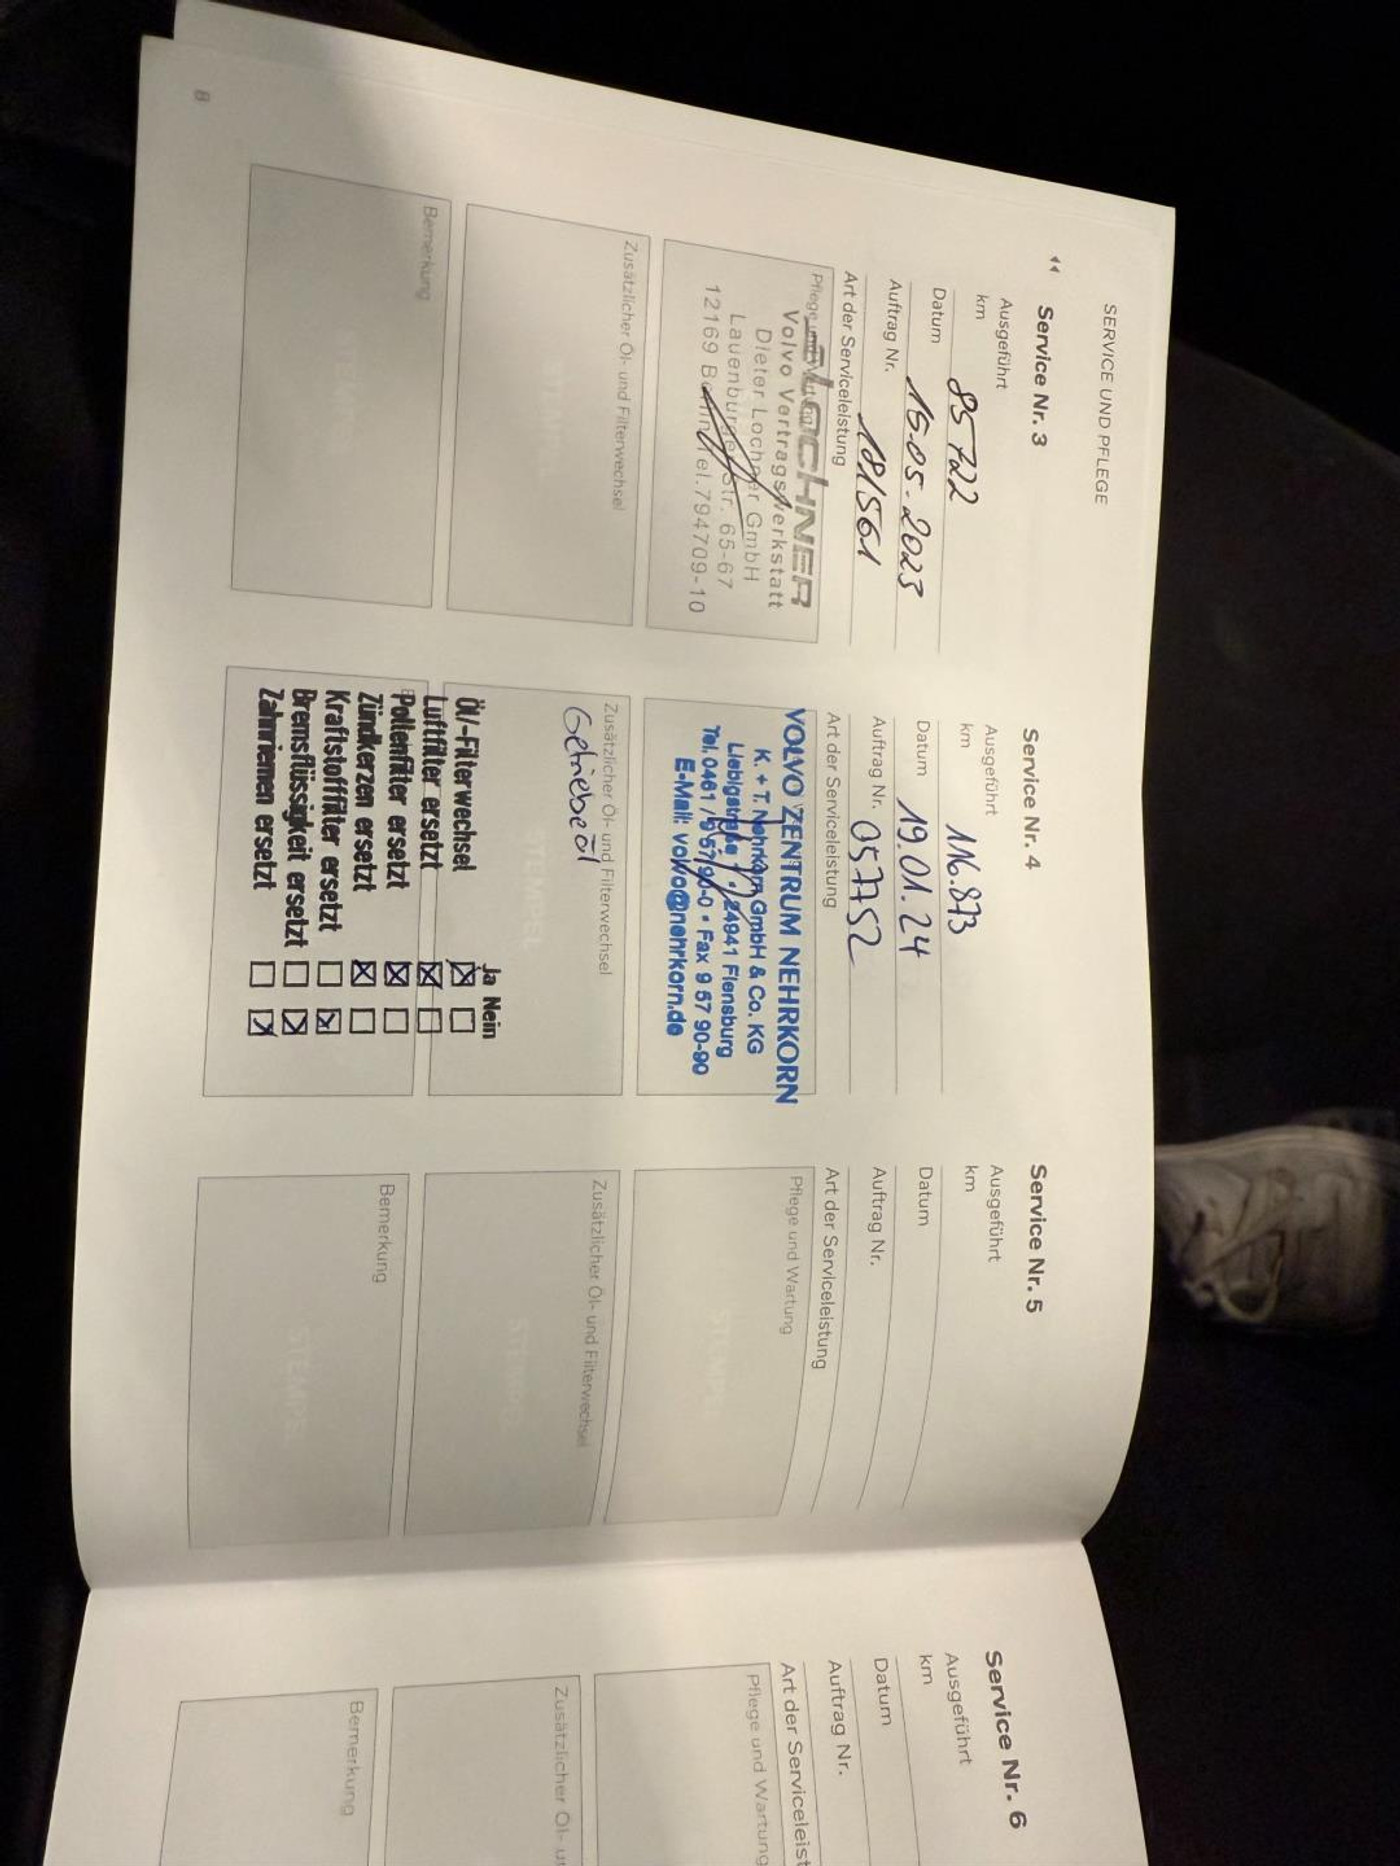 SERVICE UND PFLEGE
Service Nr. 3
Ausgeführt
km 85722
Datum 15.05.2023
Auftrag Nr. 181561
Art der Serviceleistung
Pflege und Wartung
LOCHNER
Volvo Vertragswerkstatt
Dieter Lochner GmbH
Lauenburger Str. 65-67
12169 Berlin Tel. 794709-10
Zusätzlicher Öl- und Filterwechsel
Bemerkung
Service Nr. 4
Ausgeführt
km 116.873
Datum 19.01.24
Auftrag Nr. 057752
Art der Serviceleistung
VOLVO ZENTRUM NEHRKORN
K. + T. Nehrkorn GmbH & Co. KG
Liebigstraße 24941 Flensburg
Tel. 0461 / 9 57 90-0 • Fax 9 57 90-90
E-Mail: volvo@nehrkorn.de
Zusätzlicher Öl- und Filterwechsel
Getriebeöl
STEMPEL
Ja Nein
Öl/-Filterwechsel ☒ ☐
Luftfilter ersetzt ☒ ☐
Pollenfilter ersetzt ☒ ☐
Zündkerzen ersetzt ☒ ☐
Kraftstofffilter ersetzt ☐ ☒
Bremsflüssigkeit ersetzt ☐ ☒
Zahnriemen ersetzt ☐ ☒
Service Nr. 5
Ausgeführt
km
Datum
Auftrag Nr.
Art der Serviceleistung
Pflege und Wartung
STEMPEL
Zusätzlicher Öl- und Filterwechsel
STEMPEL
Bemerkung
STEMPEL
8
Service Nr. 6
Ausgeführt
km
Datum
Auftrag Nr.
Art der Serviceleist
Pflege und Wartung
Zusätzlicher Öl- u
Bemerkung